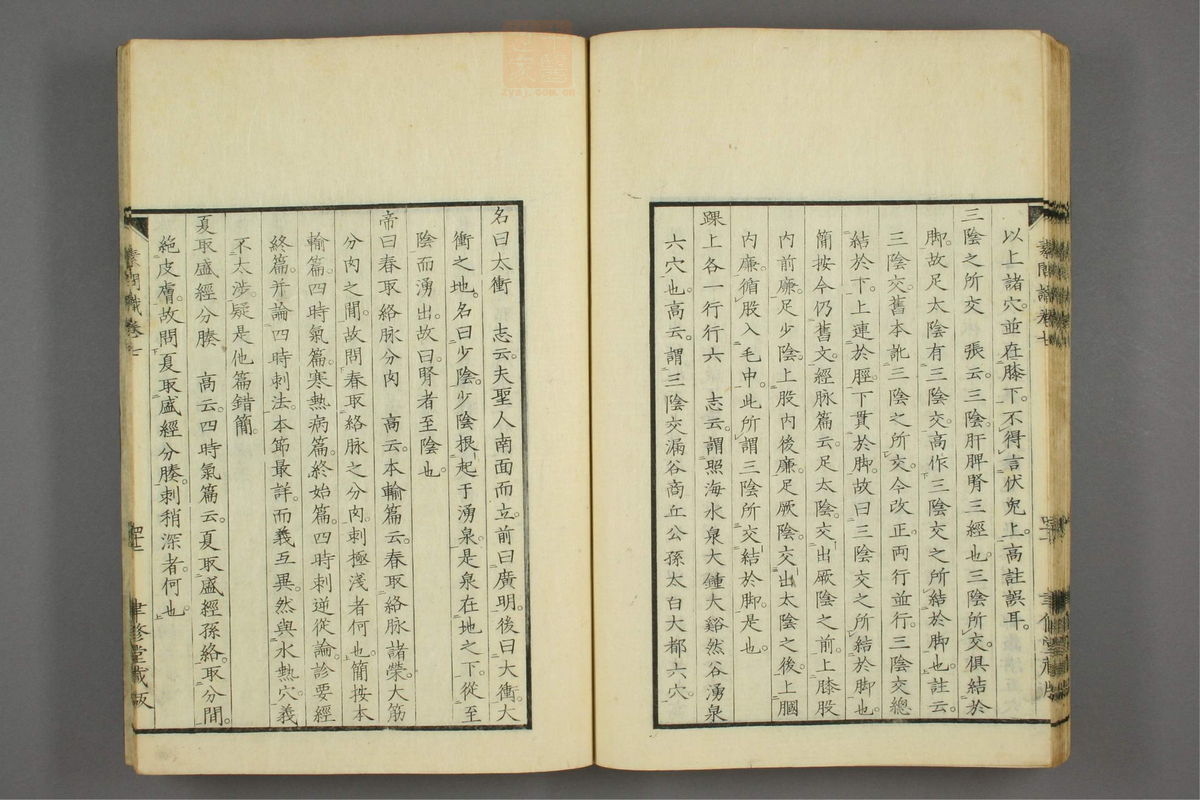 以上諸穴並在膝下。不得言伏兔上。高註誤耳。
三陰之所交　張云。三陰。肝脾腎三經也。三陰所交。俱結於
脚。故足太陰有三陰交。高作三陰交之所結於脚也。註云。
三陰交。舊本訛三陰之所交。今改正。兩行並行。三陰交總
結於下。上連於脛。下貫於脚。故曰三陰交之所結於脚也。
簡按今仍舊文。經脉篇云。足太陰。交出厥陰之前。上膝股
內前廉。足少陰。上股內後廉。足厥陰。交出太陰之後。上膕
內廉。循股入毛中。此所謂三陰所交結於脚是也。
踝上各一行行六　志云。謂照海水泉大鍾大谿然谷湧泉
六穴也。高云。謂三陰交漏谷商丘公孫太白大都六穴。
名曰太衝　志云。夫聖人南面而立。前曰廣明。後曰大衝。大
衝之地。名曰少陰。少陰根起于湧泉。是泉在地之下。從至
陰而湧出。故曰。腎者至陰也。
帝曰春取絡脉分肉　高云。本輸篇云。春取絡脉諸滎。大筋
分肉之間。故問春取絡脉之分肉。刺極淺者何也。簡按本
輸篇。四時氣篇。寒熱病篇。終始篇。四時刺逆從論。診要經
終篇。并論四時刺法。本節最詳。而義互異。然與水熱穴義
不太涉。疑是他篇錯簡。
夏取盛經分腠　高云。四時氣篇云。夏取盛經孫絡。取分間。
絶皮膚。故問夏取盛經分腠。刺稍深者何也。
素問識卷七
聿修堂藏版
zysj.com.cn